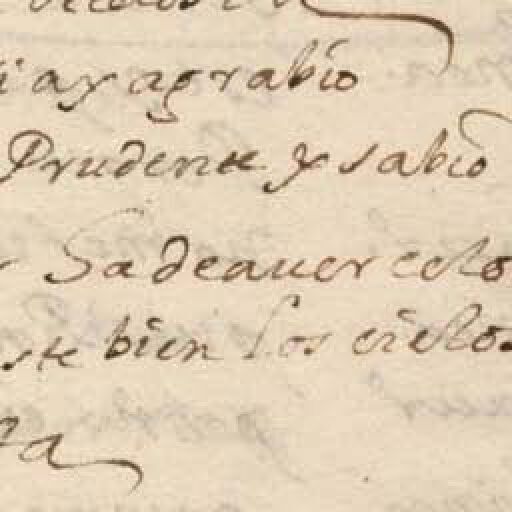 i ay agrabio
Prudente y sabio
Sa de auer celo
ste bien los cielos
ta